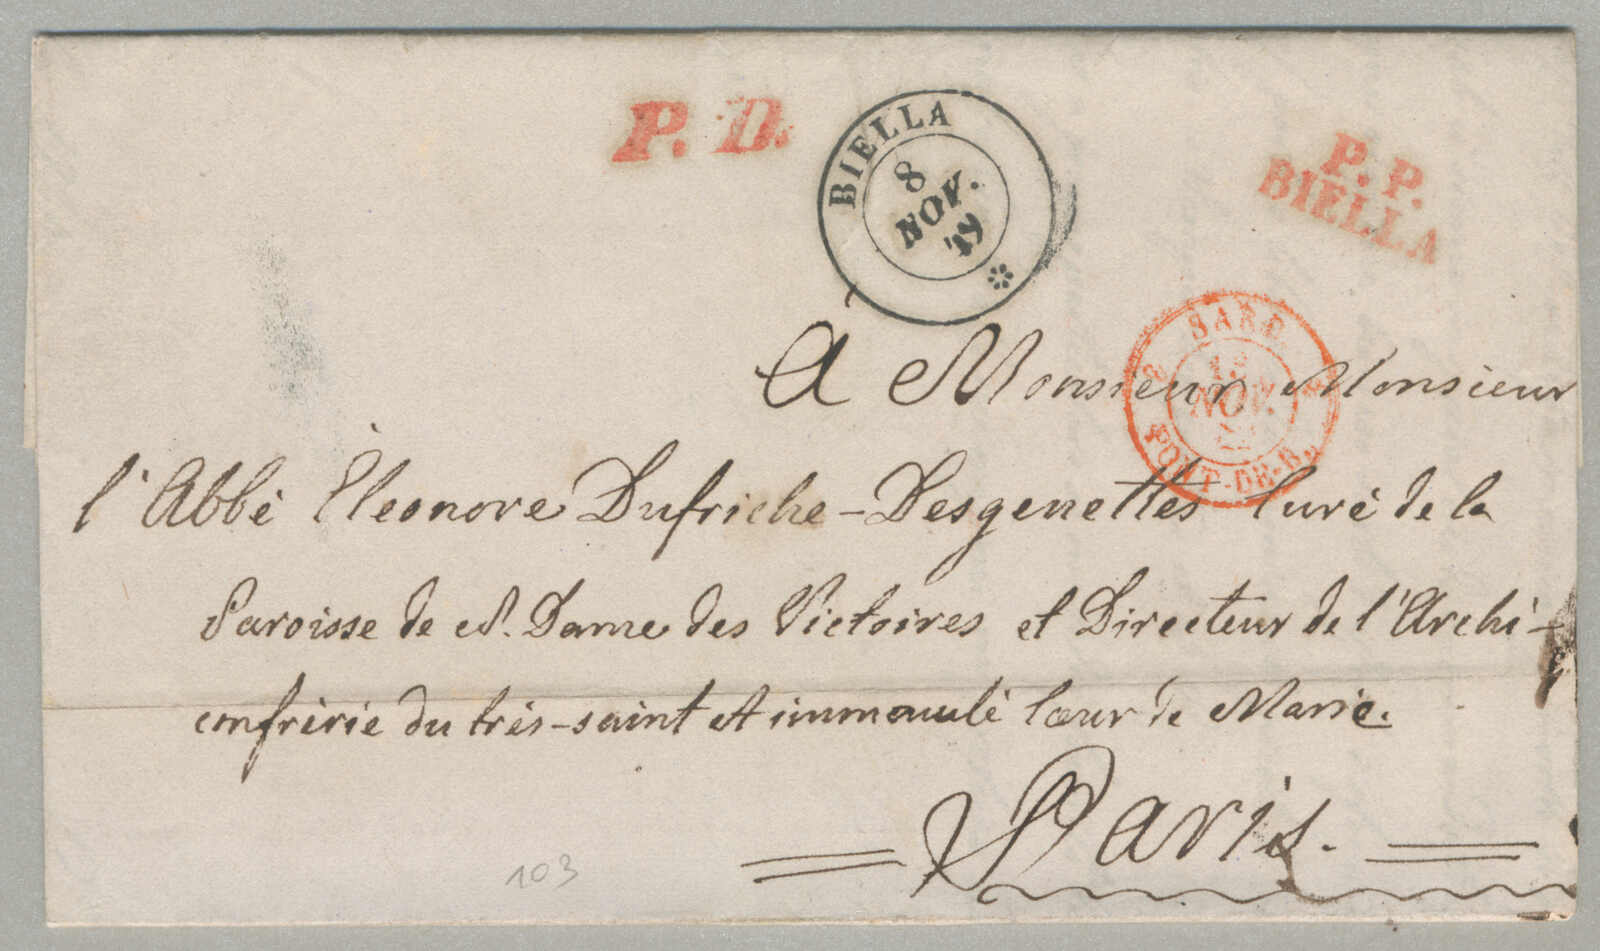 P. D.
BIELLA
8
NOV.
P. P.
BIELLA
SARD.
NOV.
PONT-DE-B.
À Monsieur Monsieur
l'Abbé Èleonore Dufriche-Desgenettes Curé de la
Paroisse de N. Dame des Victoires et Directeur de l'Archi-
confrèrie du très-saint et immaculé Cœur de Marie.
Paris.
103